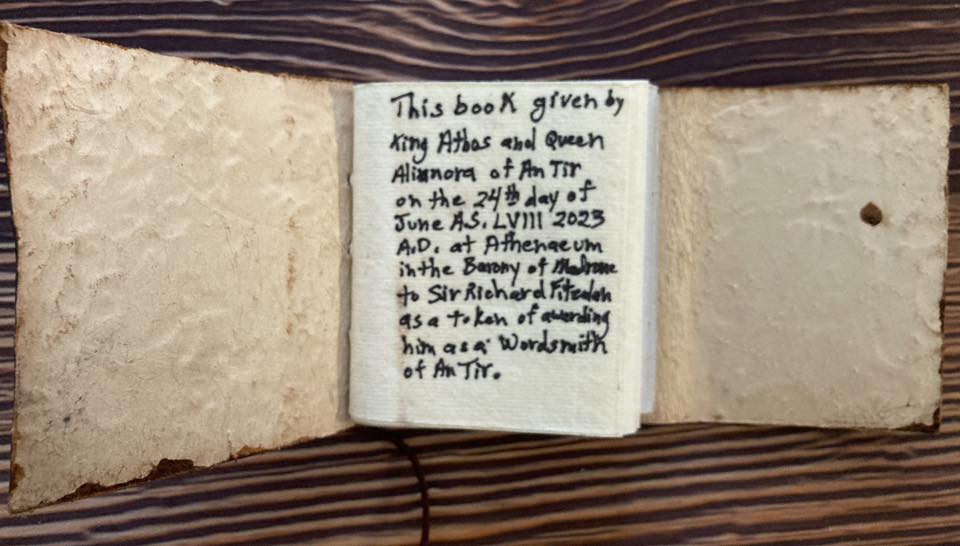 This book given by
King Athos and Queen
Aliänora of An Tir
on the 24th day of
June A.S. LVIII 2023
A.D. at Athenaeum
in the Barony of Madrone
to Sir Richard Fitzalan
as a token of awarding
him as a Wordsmith
of An Tir.